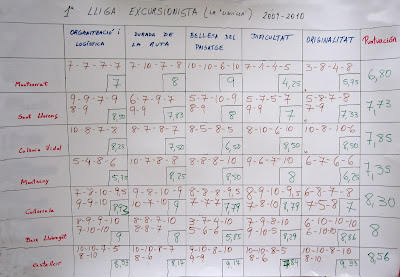 1ª LLIGA EXCURSIONISTA (La "única") 2009-2010
ORGANITZACIÓ i LOGÍSTICA DURADA DE LA RUTA BELLESA DEL PAISATGE DIFICULTAT ORIGINALITAT Puntuación
7-7-7-7 7-10-7-8 10-10-6-10 7-1-4-5 3-8-4-8
Montserrat 7 8 9 4,25 5,75 6,80
9-9-7-9 6-7-9-7 5-7-10-9 5-7-5-7 5-8-7-8
Sant Llorenç 8-9 8,50 9-9 7,83 8-9 8 8-9 7 7-9 7,33 7,73
10-8-7-8 8-7-8-7 8-5-8-5 8-10-6-10 10-8-10-6
Colònia Vidal 8,25 7,50 6,50 8,50 8,50 7,85
5-4-8-6 10-7-8-8 8-8-8-10 9-6-7-10 6-7-6-6
Montseny 5,75 8,25 8,50 8 6,25 7,35
7-8-10-9,5 9-8-10-9 8-8-8-9,5 8-9-10-9,5 6-8-7-8
Collserola 9-9-10 10-10 7-7-7 7,79 7-10-8 8,79 7-5-8 7 8,30
8-9-9-10 8-8-7-10 3-7-4-10 7-9-8-10 6-10-10-10
Baix Llobregat 7-10-10 9 8 5-6 5,85 9-10 8,29 6-10-8 8,56 8
10-10-7-5 10-10-8-7 9-10-8-10 10-10-8-5 10-8-10-10
Castellcir 10-8 8,33 8-6 8,17 9-10 8-6 8-10 9,33 8,56